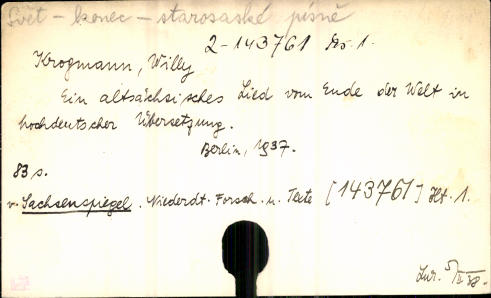 Svět - konec - starosaské písně
2-143761 Hs. 1.
Krogmann, Willy
Ein altsächsisches Lied vom Ende der Welt in
hochdeutscher Übersetzung.
Berlin, 1937.
83 s.
v. Sachsenspiegel. Niederdt. Forsch. u. Texte [143761] Hft. 1.